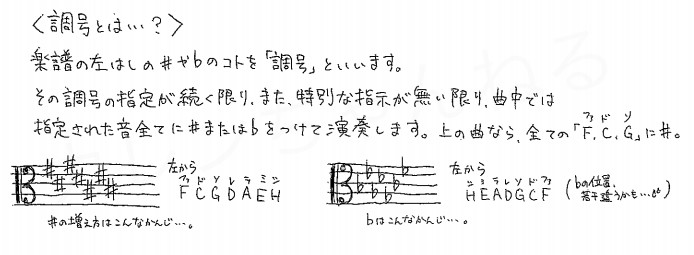 〈調号とは…?〉
楽譜の左はしの♯や♭のコトを「調号」といいます。
その調号の指定が続く限り、また、特別な指示が無い限り、曲中では
指定された音全てに♯または♭をつけて演奏します。上の曲なら、全ての「F、C、G」に♯。
ファ ド ソ
左から
ファ ド ソ レ ラ ミ シ
F C G D A E H
♯の増え方はこんなかんじ…。
左から
シ ミ ラ レ ソ ド ファ
H E A D G C F
(♭の位置、若干違うかも…)
♭はこんなかんじ…。